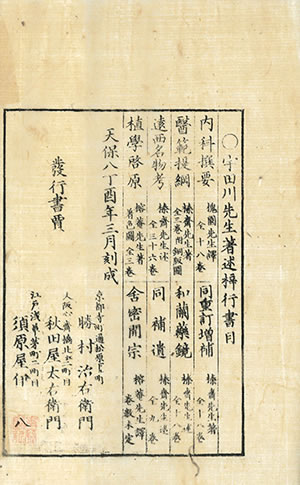 〇宇田川先生著述梓行書目
内科撰要 槐園先生譯 全十八卷 同重訂増補 榛齋先生著 全十八卷
醫範提綱 榛齋先生著 全三卷附銅版圖 和蘭藥鏡 榛齋先生述 全十八卷
遠西名物考 榛齋先生述 全三十六卷 同補遺 榛齋先生述 全九卷
植學啓原 榕菴先生著 着色圖全三卷 舎密開宗 榕菴先生譯 卷數未定
天保八丁酉年三月刻成
發行書賈
京都寺町通松原
勝村治右衛門
大坂心齋橋
秋田屋太右衛門
江戸浅草茅町二町目
須原屋伊八